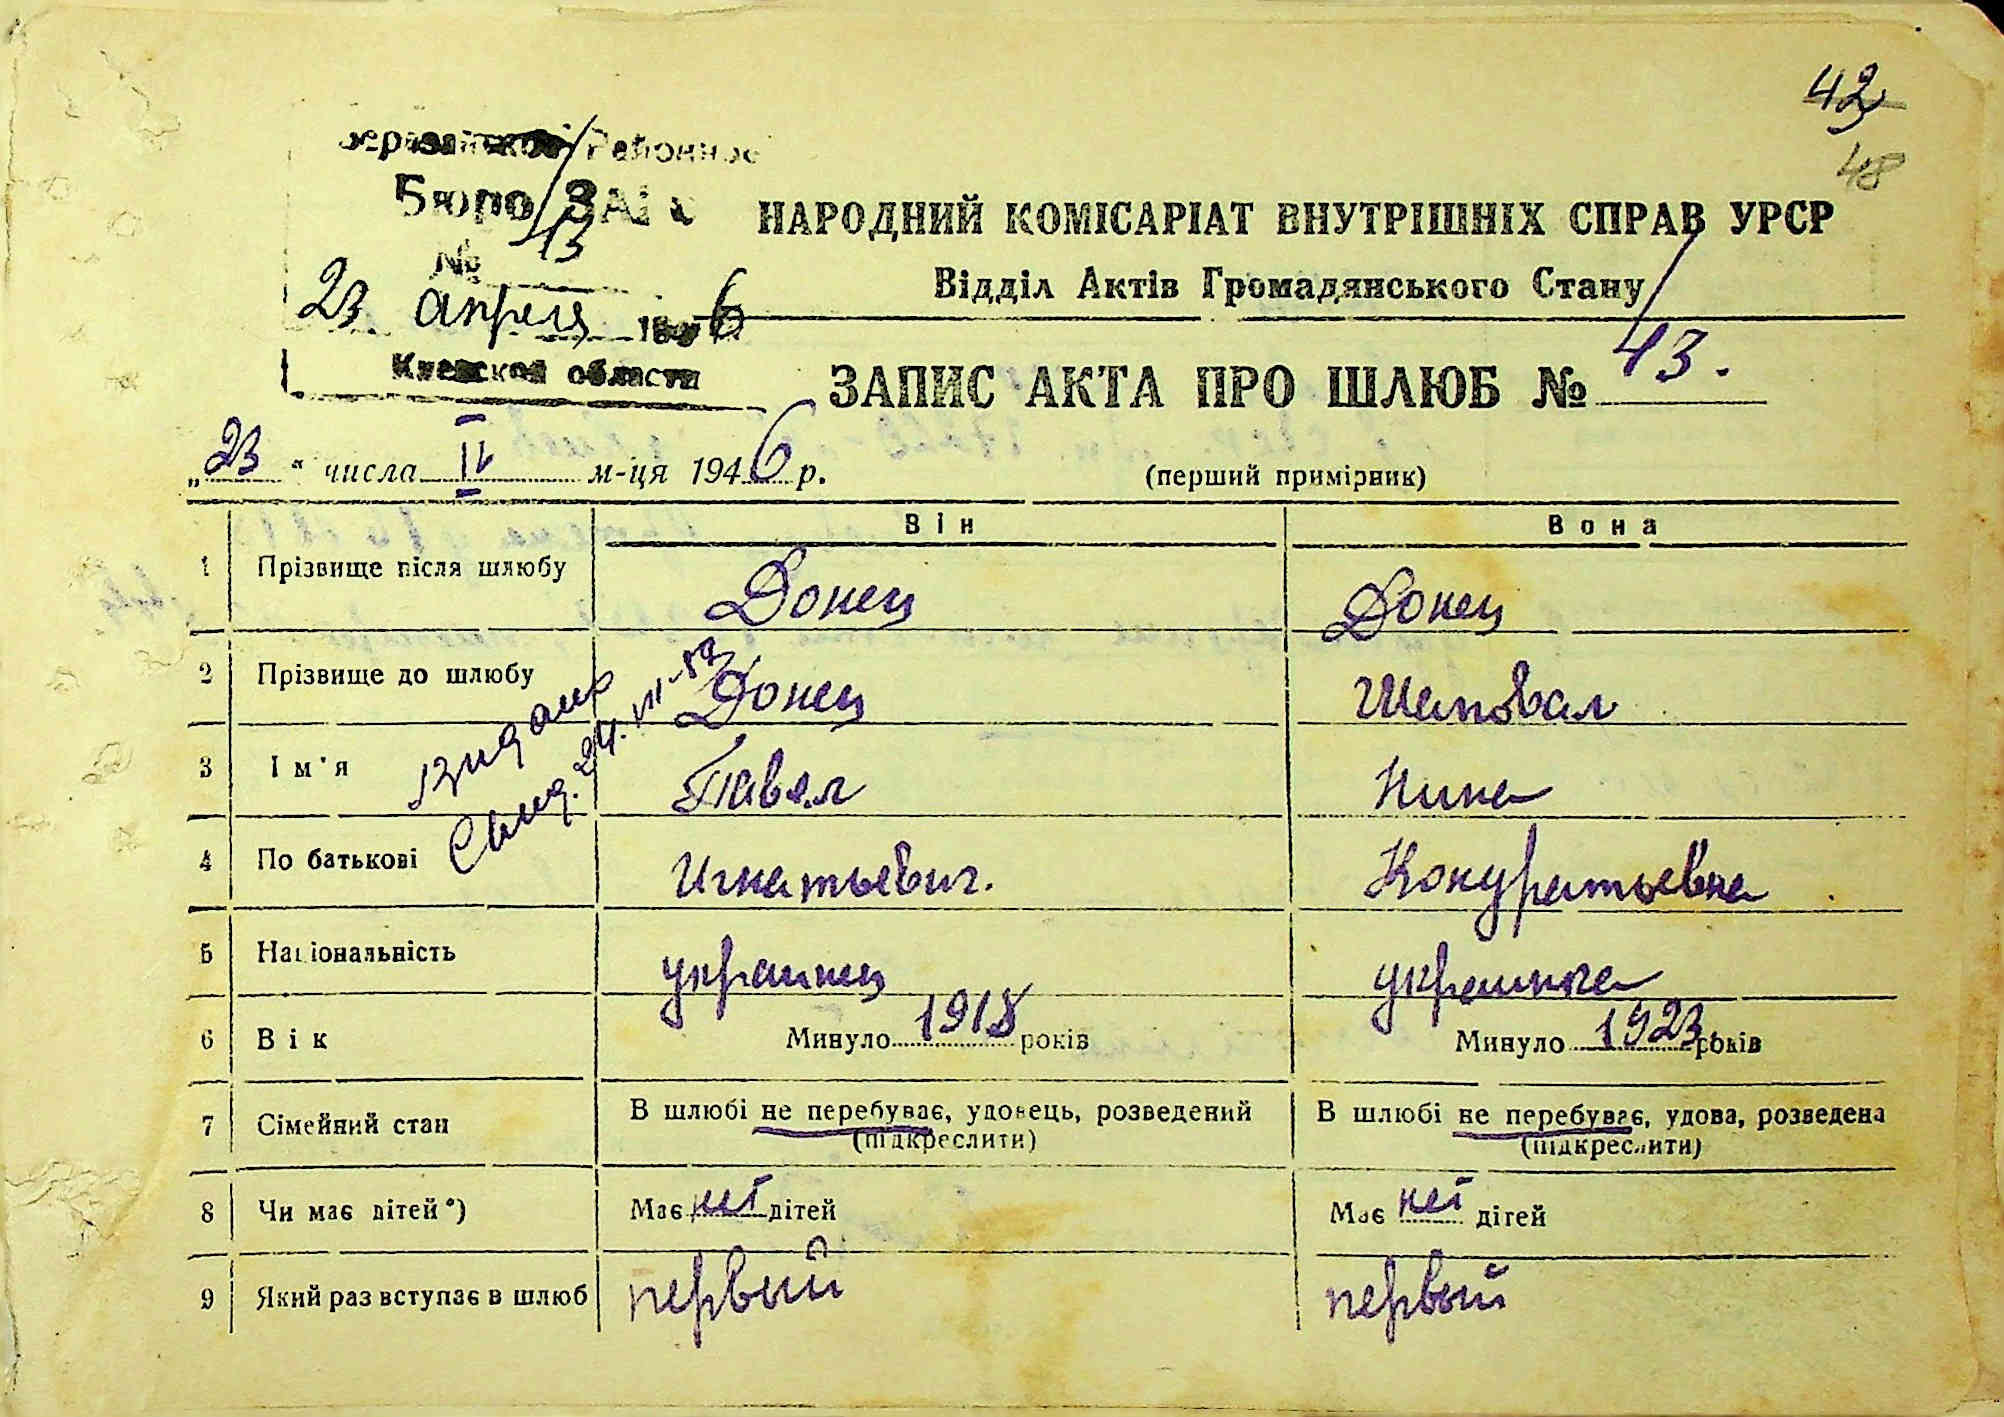 42
48
Березанское Районное
Бюро ЗАГС
№ 13
23 апреля 1946
Киевской области
НАРОДНИЙ КОМІСАРІАТ ВНУТРІШНІХ СПРАВ УРСР
Відділ Актів Громадянського Стану
ЗАПИС АКТА ПРО ШЛЮБ № 13.
„23“ числа IV м-ця 1946 р.
(перший примірник)
Він Вона
1 Прізвище після шлюбу Донец Донец
2 Прізвище до шлюбу Донец Шаповал
3 Ім'я Павел Нина
4 По батькові Игнатьевич. Кондратьевна
видано
Свид. 24.VII-53
5 Національність украинец украинка
6 Вік Минуло 1918 років Минуло 1923 років
7 Сімейний стан В шлюбі не перебуває, удовець, розведений В шлюбі не перебуває, удова, розведена
(підкреслити) (підкреслити)
8 Чи має дітей*) Має нет дітей Має нет дітей
9 Який раз вступає в шлюб первый первый